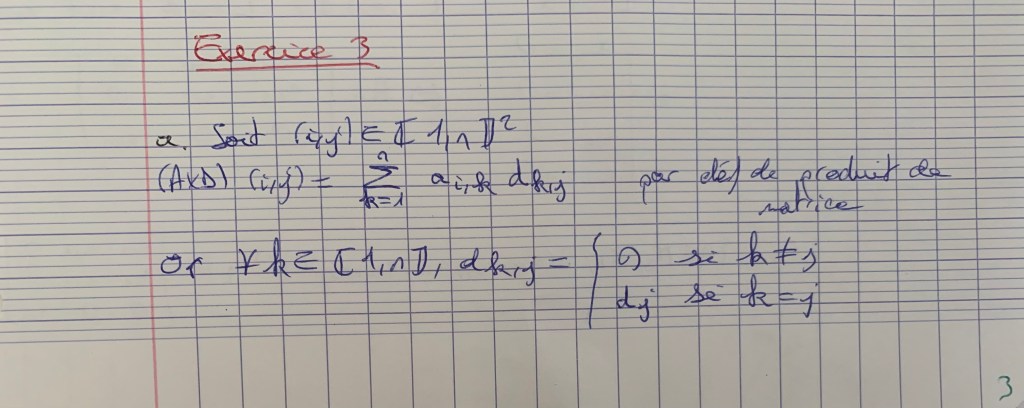 Exercice 3
a. Soit (i,j) ∈ ⟦1,n⟧²
(A×D) (i,j) = ∑_{k=1}^{n} a_{i,k} d_{k,j} par déf de produit de
matrice
Or ∀k ∈ ⟦1,n⟧, d_{k,j} = { 0 si k ≠ j
d_j si k = j
3